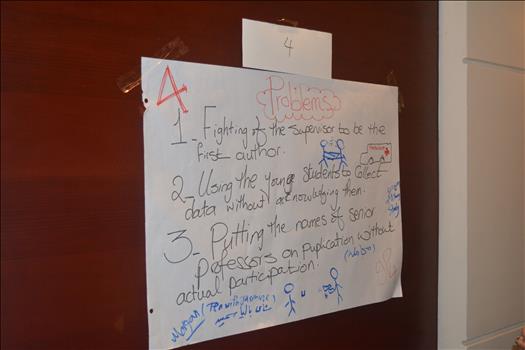 4
4
Problems
1_ Fighting of the supervisor to be the
first author.
2_ Using the young students to collect
data without acknowledging them.
3_ Putting the names of senior
Professors on puplication without
actual participation.